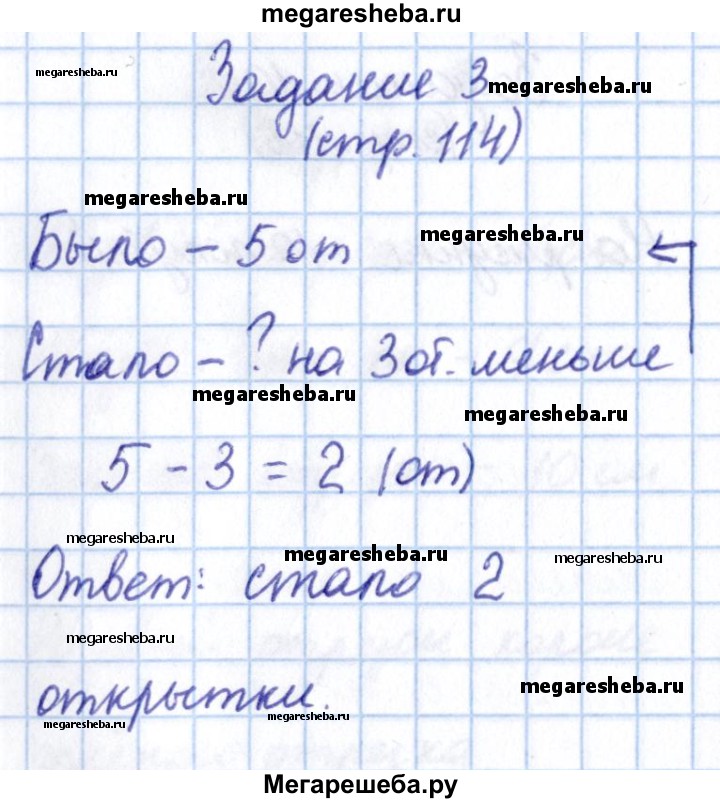 megaresheba.ru
megaresheba.ru
Задание 3 megaresheba.ru
(стр. 114)
megaresheba.ru
Было – 5 от megaresheba.ru
Стало – ? на 3 от. меньше
megaresheba.ru
megaresheba.ru
5 – 3 = 2 (от)
megaresheba.ru
megaresheba.ru
megaresheba.ru
Ответ: стало 2
megaresheba.ru
открытки.
megaresheba.ru
megaresheba.ru
megaresheba.ru
Мегарешеба.ру